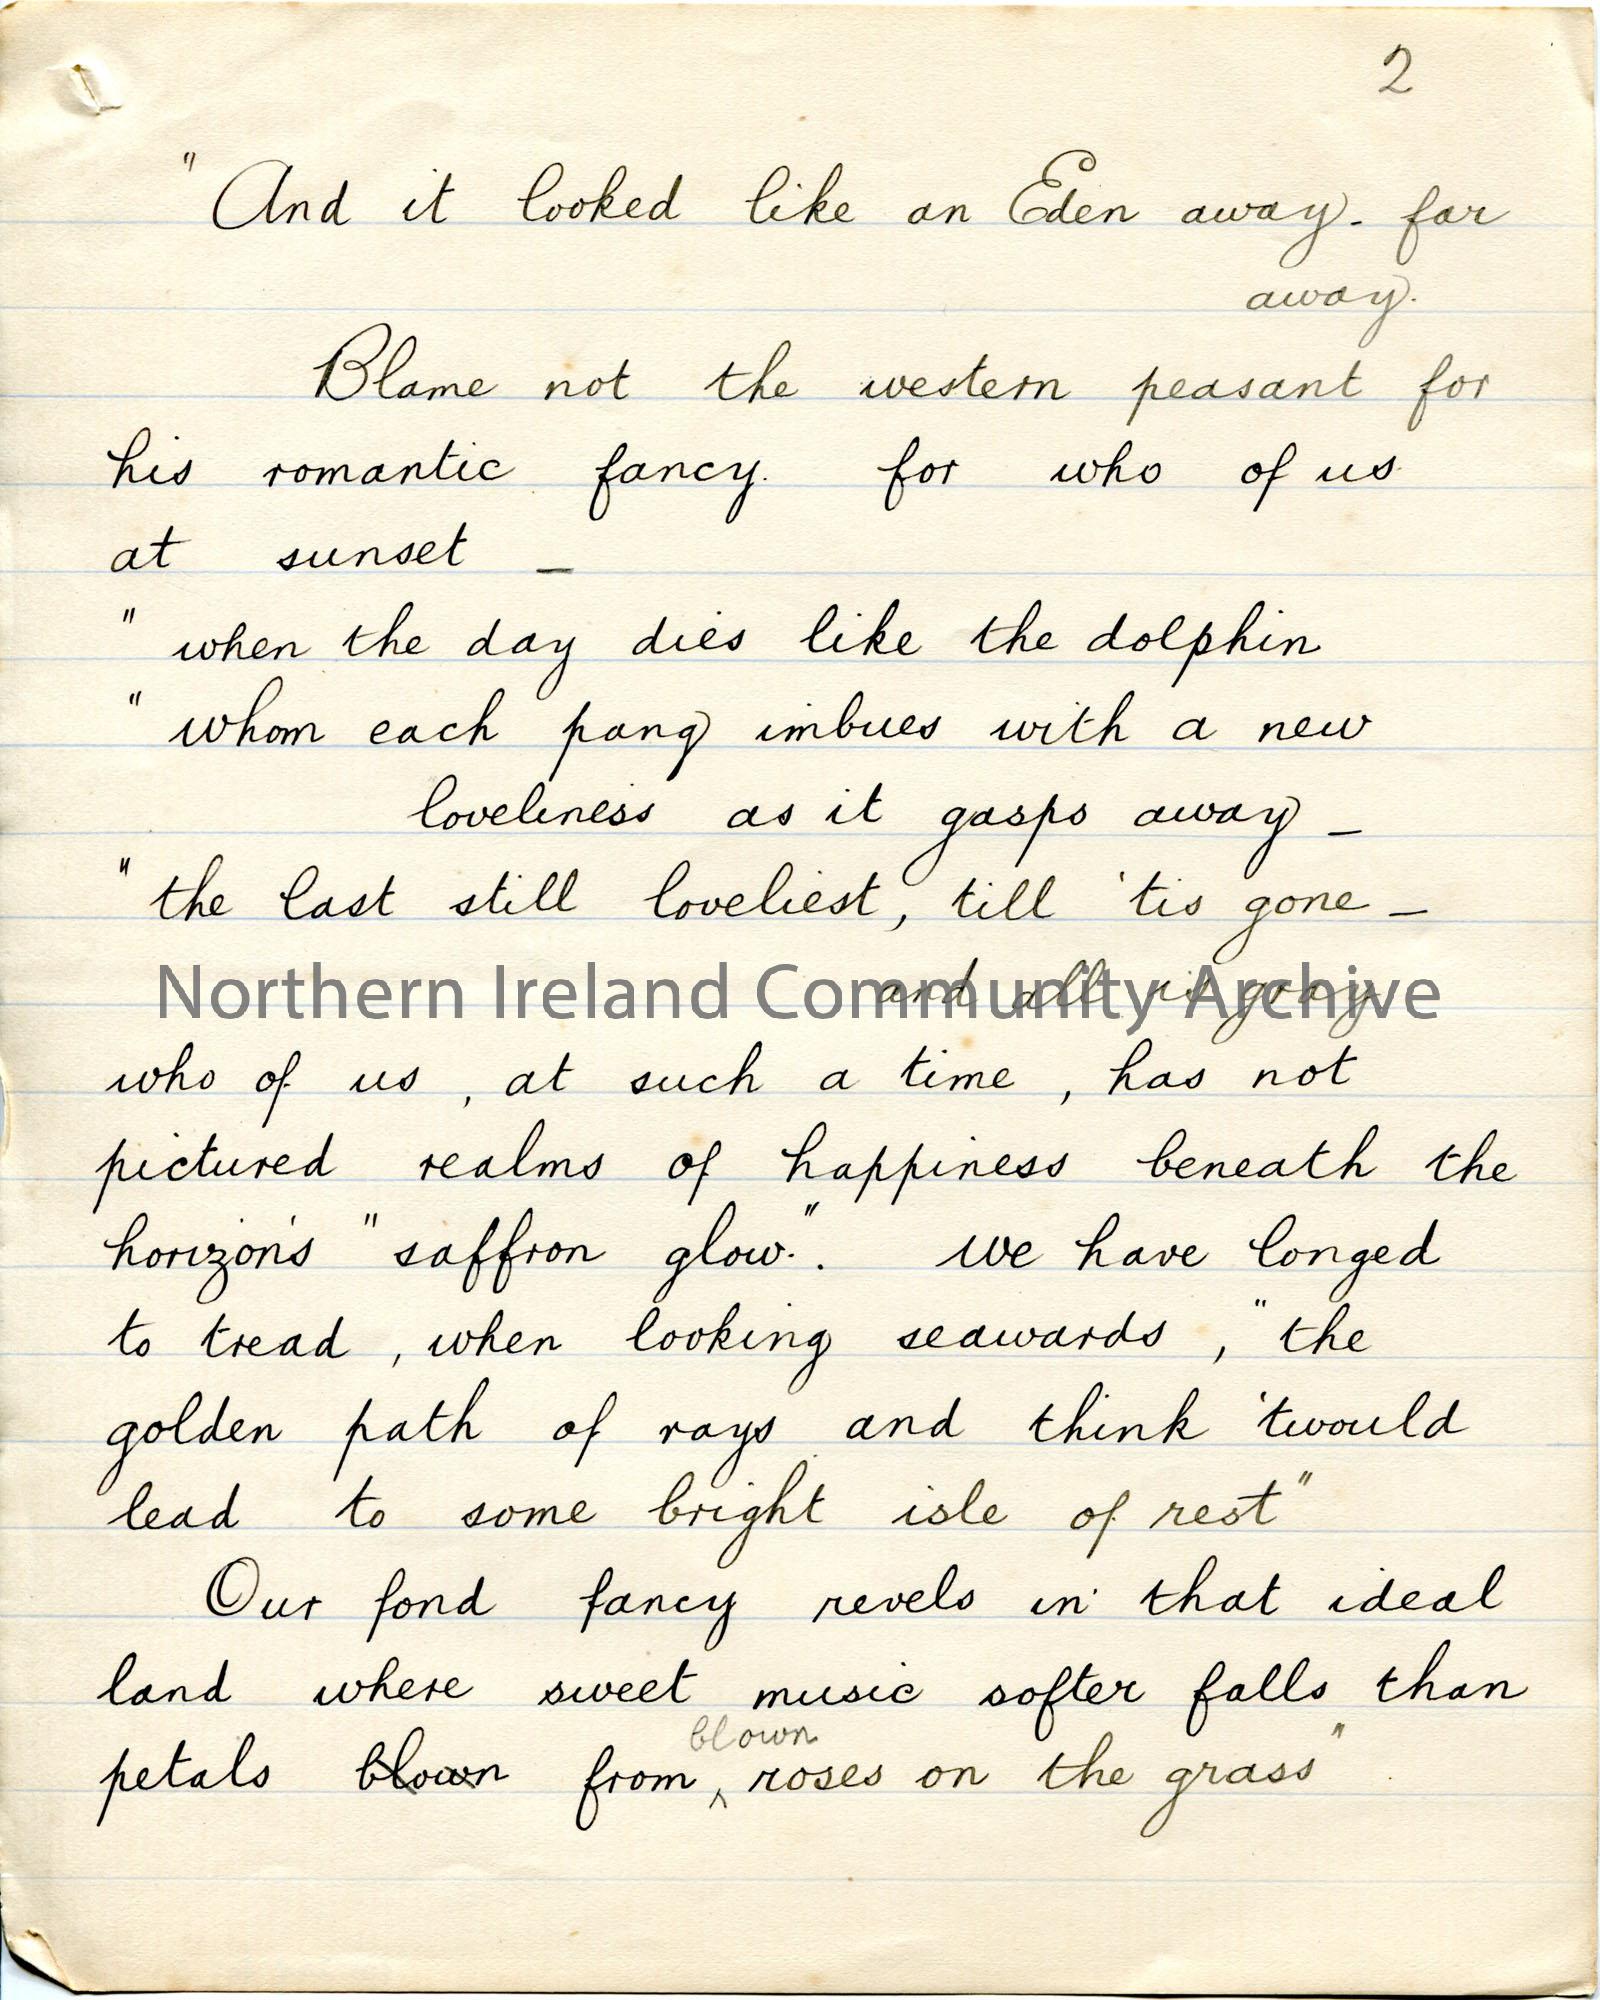 2
"And it looked like an Eden away - far
away.
Blame not the western peasant for
his romantic fancy. for who of us
at sunset –
" when the day dies like the dolphin
" whom each pang imbues with a new
loveliness as it gasps away –
" the last still loveliest, till 'tis gone –
and all is gray
Northern Ireland Community Archive
who of us, at such a time, has not
pictured realms of happiness beneath the
horizon's "saffron glow.". We have longed
to tread, when looking seawards, "the
golden path of rays and think 'twould
lead to some bright isle of rest"
Our fond fancy revels in that ideal
land where sweet music softer falls than
blown
petals blown from ^ roses on the grass"